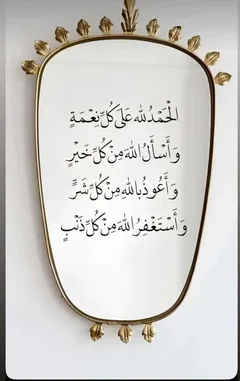 الْحَمْدُ للهِ عَلَى كُلِّ نِعْمَةٍ
وَأَسْأَلُ اللهَ مِنْ كُلِّ خَيْرٍ
وَأَعُوذُ بِاللهِ مِنْ كُلِّ شَرٍّ
وَأَسْتَغْفِرُ اللهَ مِنْ كُلِّ ذَنْبٍ